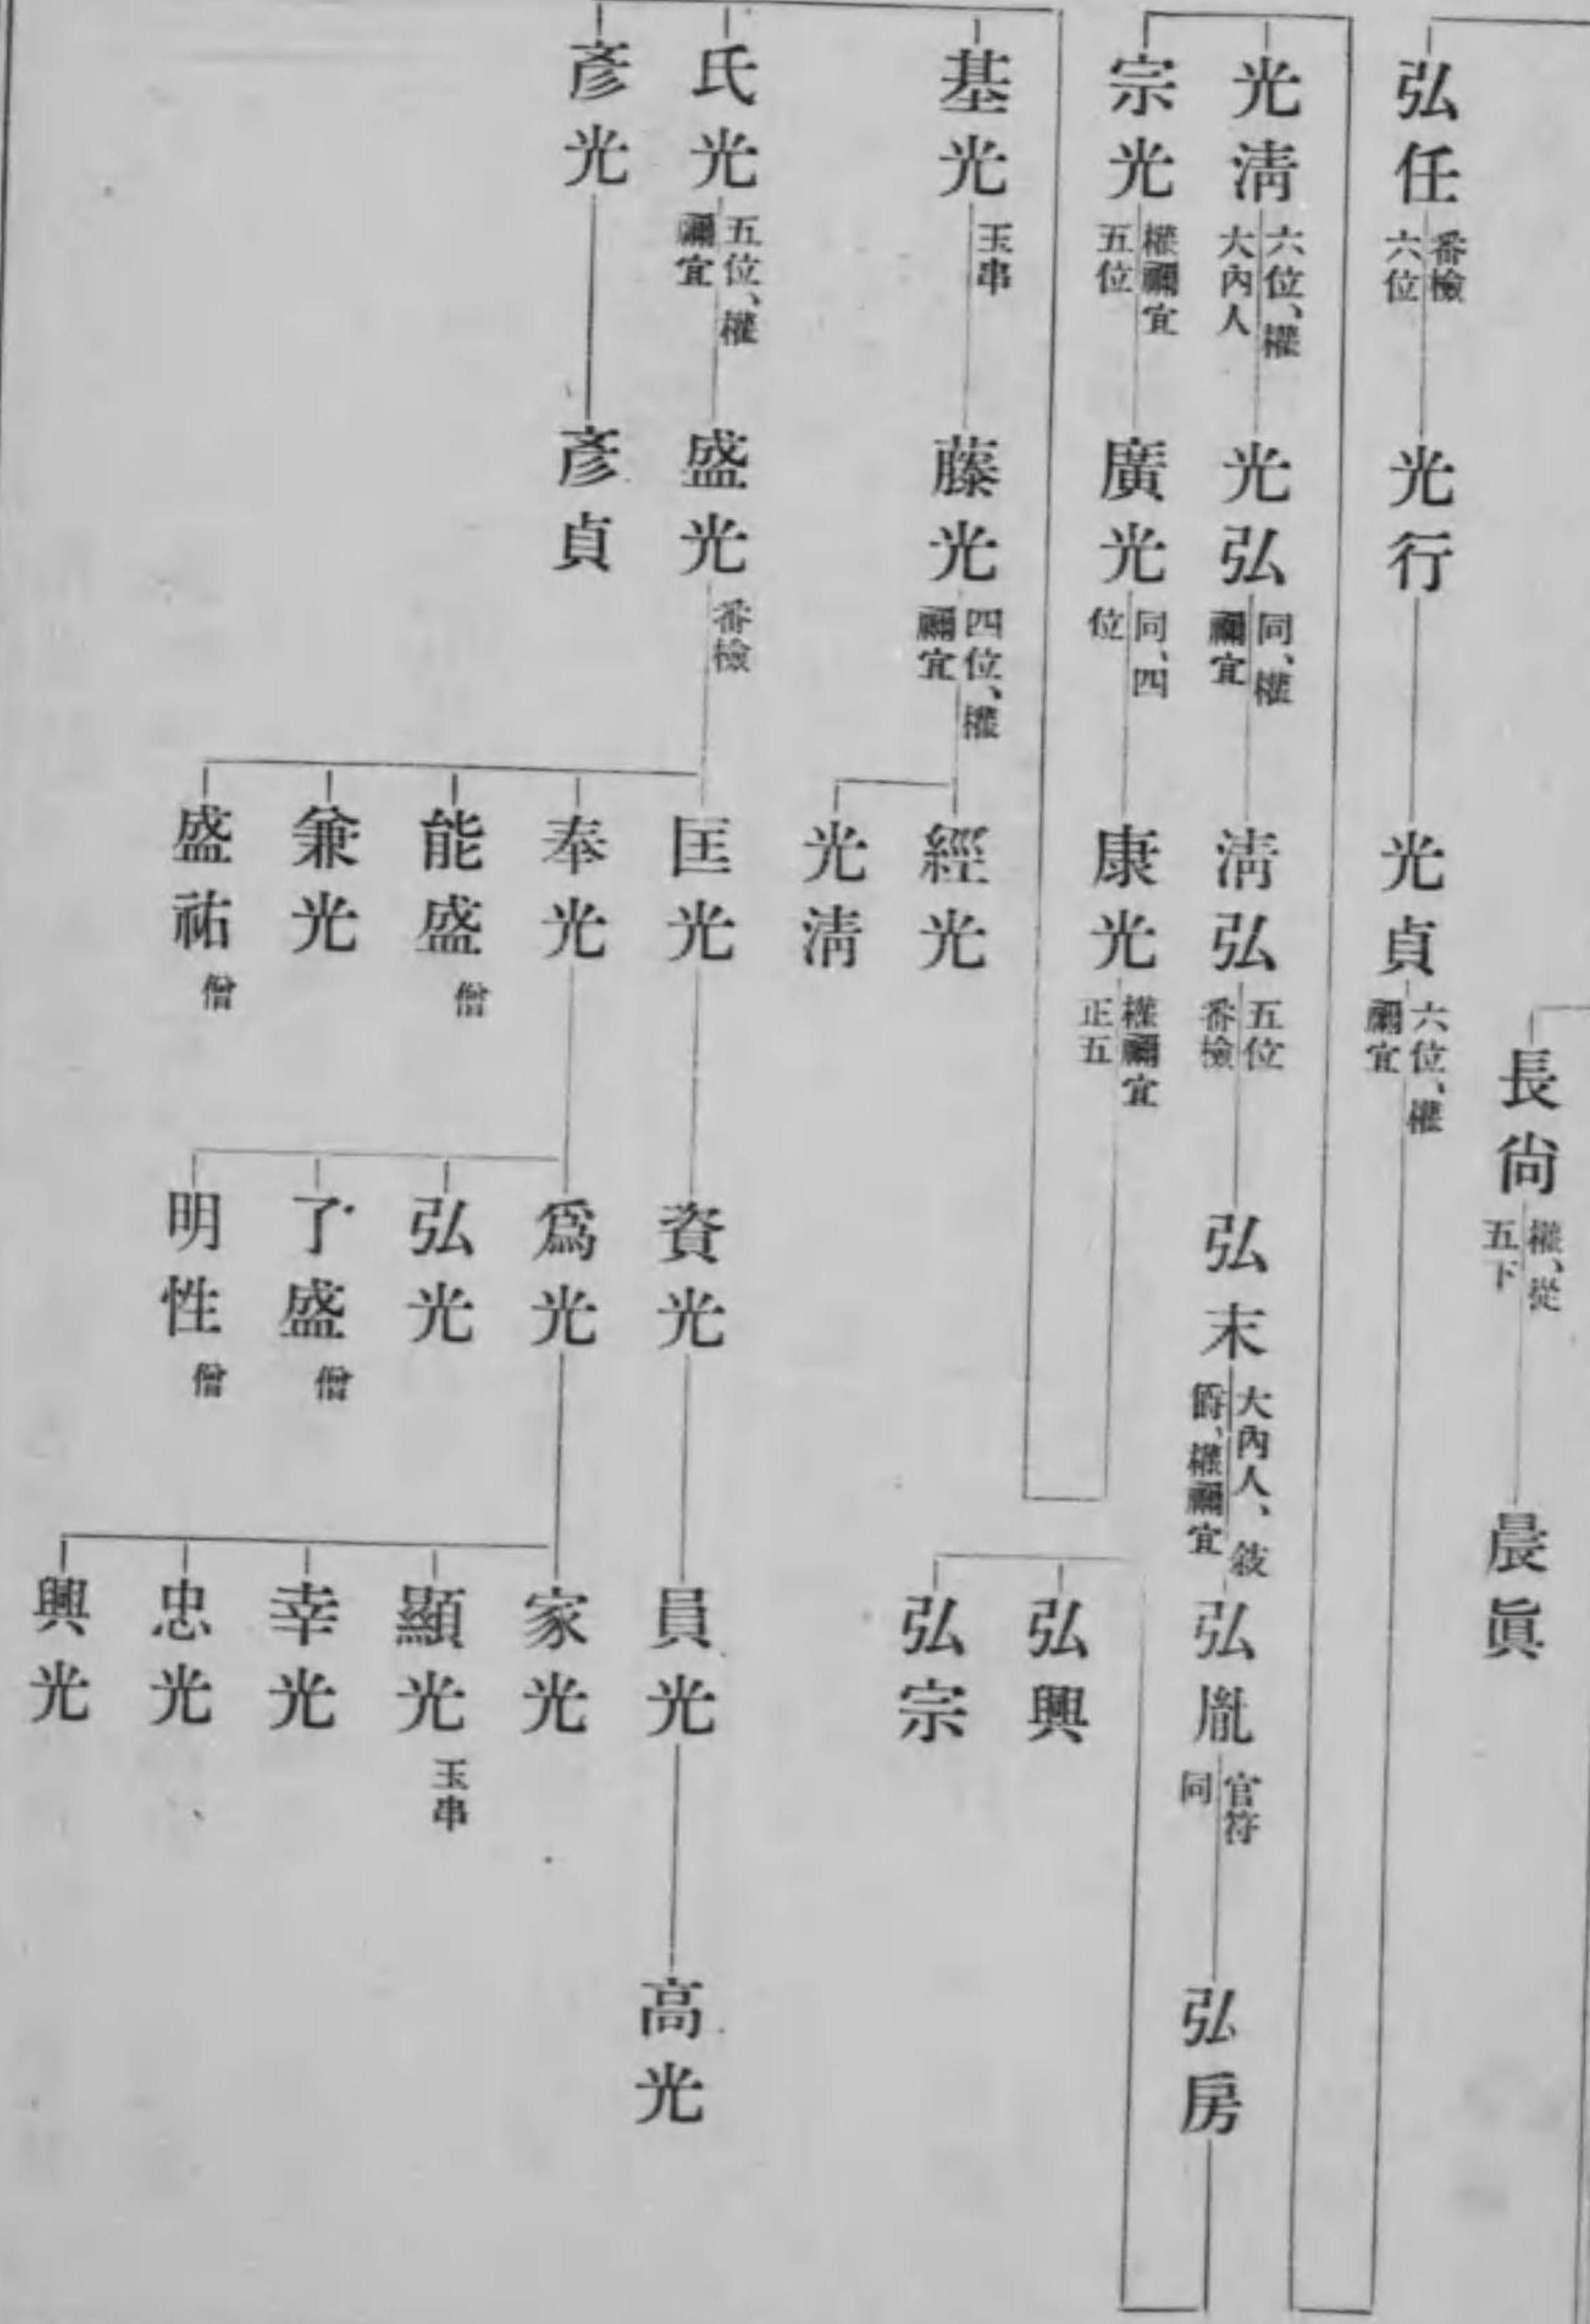 長尙 權、從五下
晨眞
弘任 番檢六位
光行
光貞 六位、權禰宜
光淸 六位、權大內人
光弘 同、權禰宜
淸弘 五位番檢
弘末 大內人、敍爵、權禰宜
弘胤 官符同
弘房
宗光 權禰宜五位
廣光 同、四位
康光 權禰宜正五
弘興
弘宗
基光 玉串
藤光 四位、權禰宜
經光
光淸
氏光 五位、權禰宜
盛光 番檢
匡光
資光
員光
高光
奉光
爲光
家光
能盛 僧
弘光
顯光 玉串
兼光
了盛 僧
幸光
盛祐 僧
明性 僧
忠光
興光
彥光
彥貞